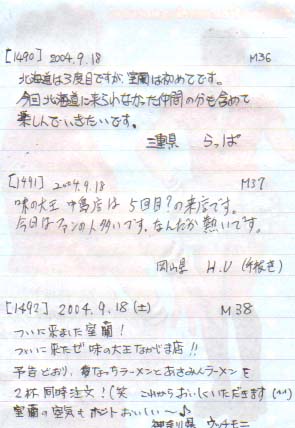 [1490] 2004.9.18 M36
北海道は3度目ですが、室蘭は初めてです。
今回北海道に来られなかった仲間の分も含めて
楽しんでいきたいです。
三重県 らっぱ
[1491] 2004.9.18 M37
味の大王 中島店は 5回目?の来店です。
今日はファンの人多いです、なんだか熱いです。
岡山県 H.U (手抜き)
[1492] 2004.9.18 (土) M38
ついに来ました室蘭!
ついに来たぜ 味の大王なかじま店!!
予告どおり、なっちラーメンとあさみんラーメンを
2杯同時注文!(笑 これからおいしくいただきます (^^)
室蘭の空気もホントおいしい〜♪
神奈川県 ウッチモニ